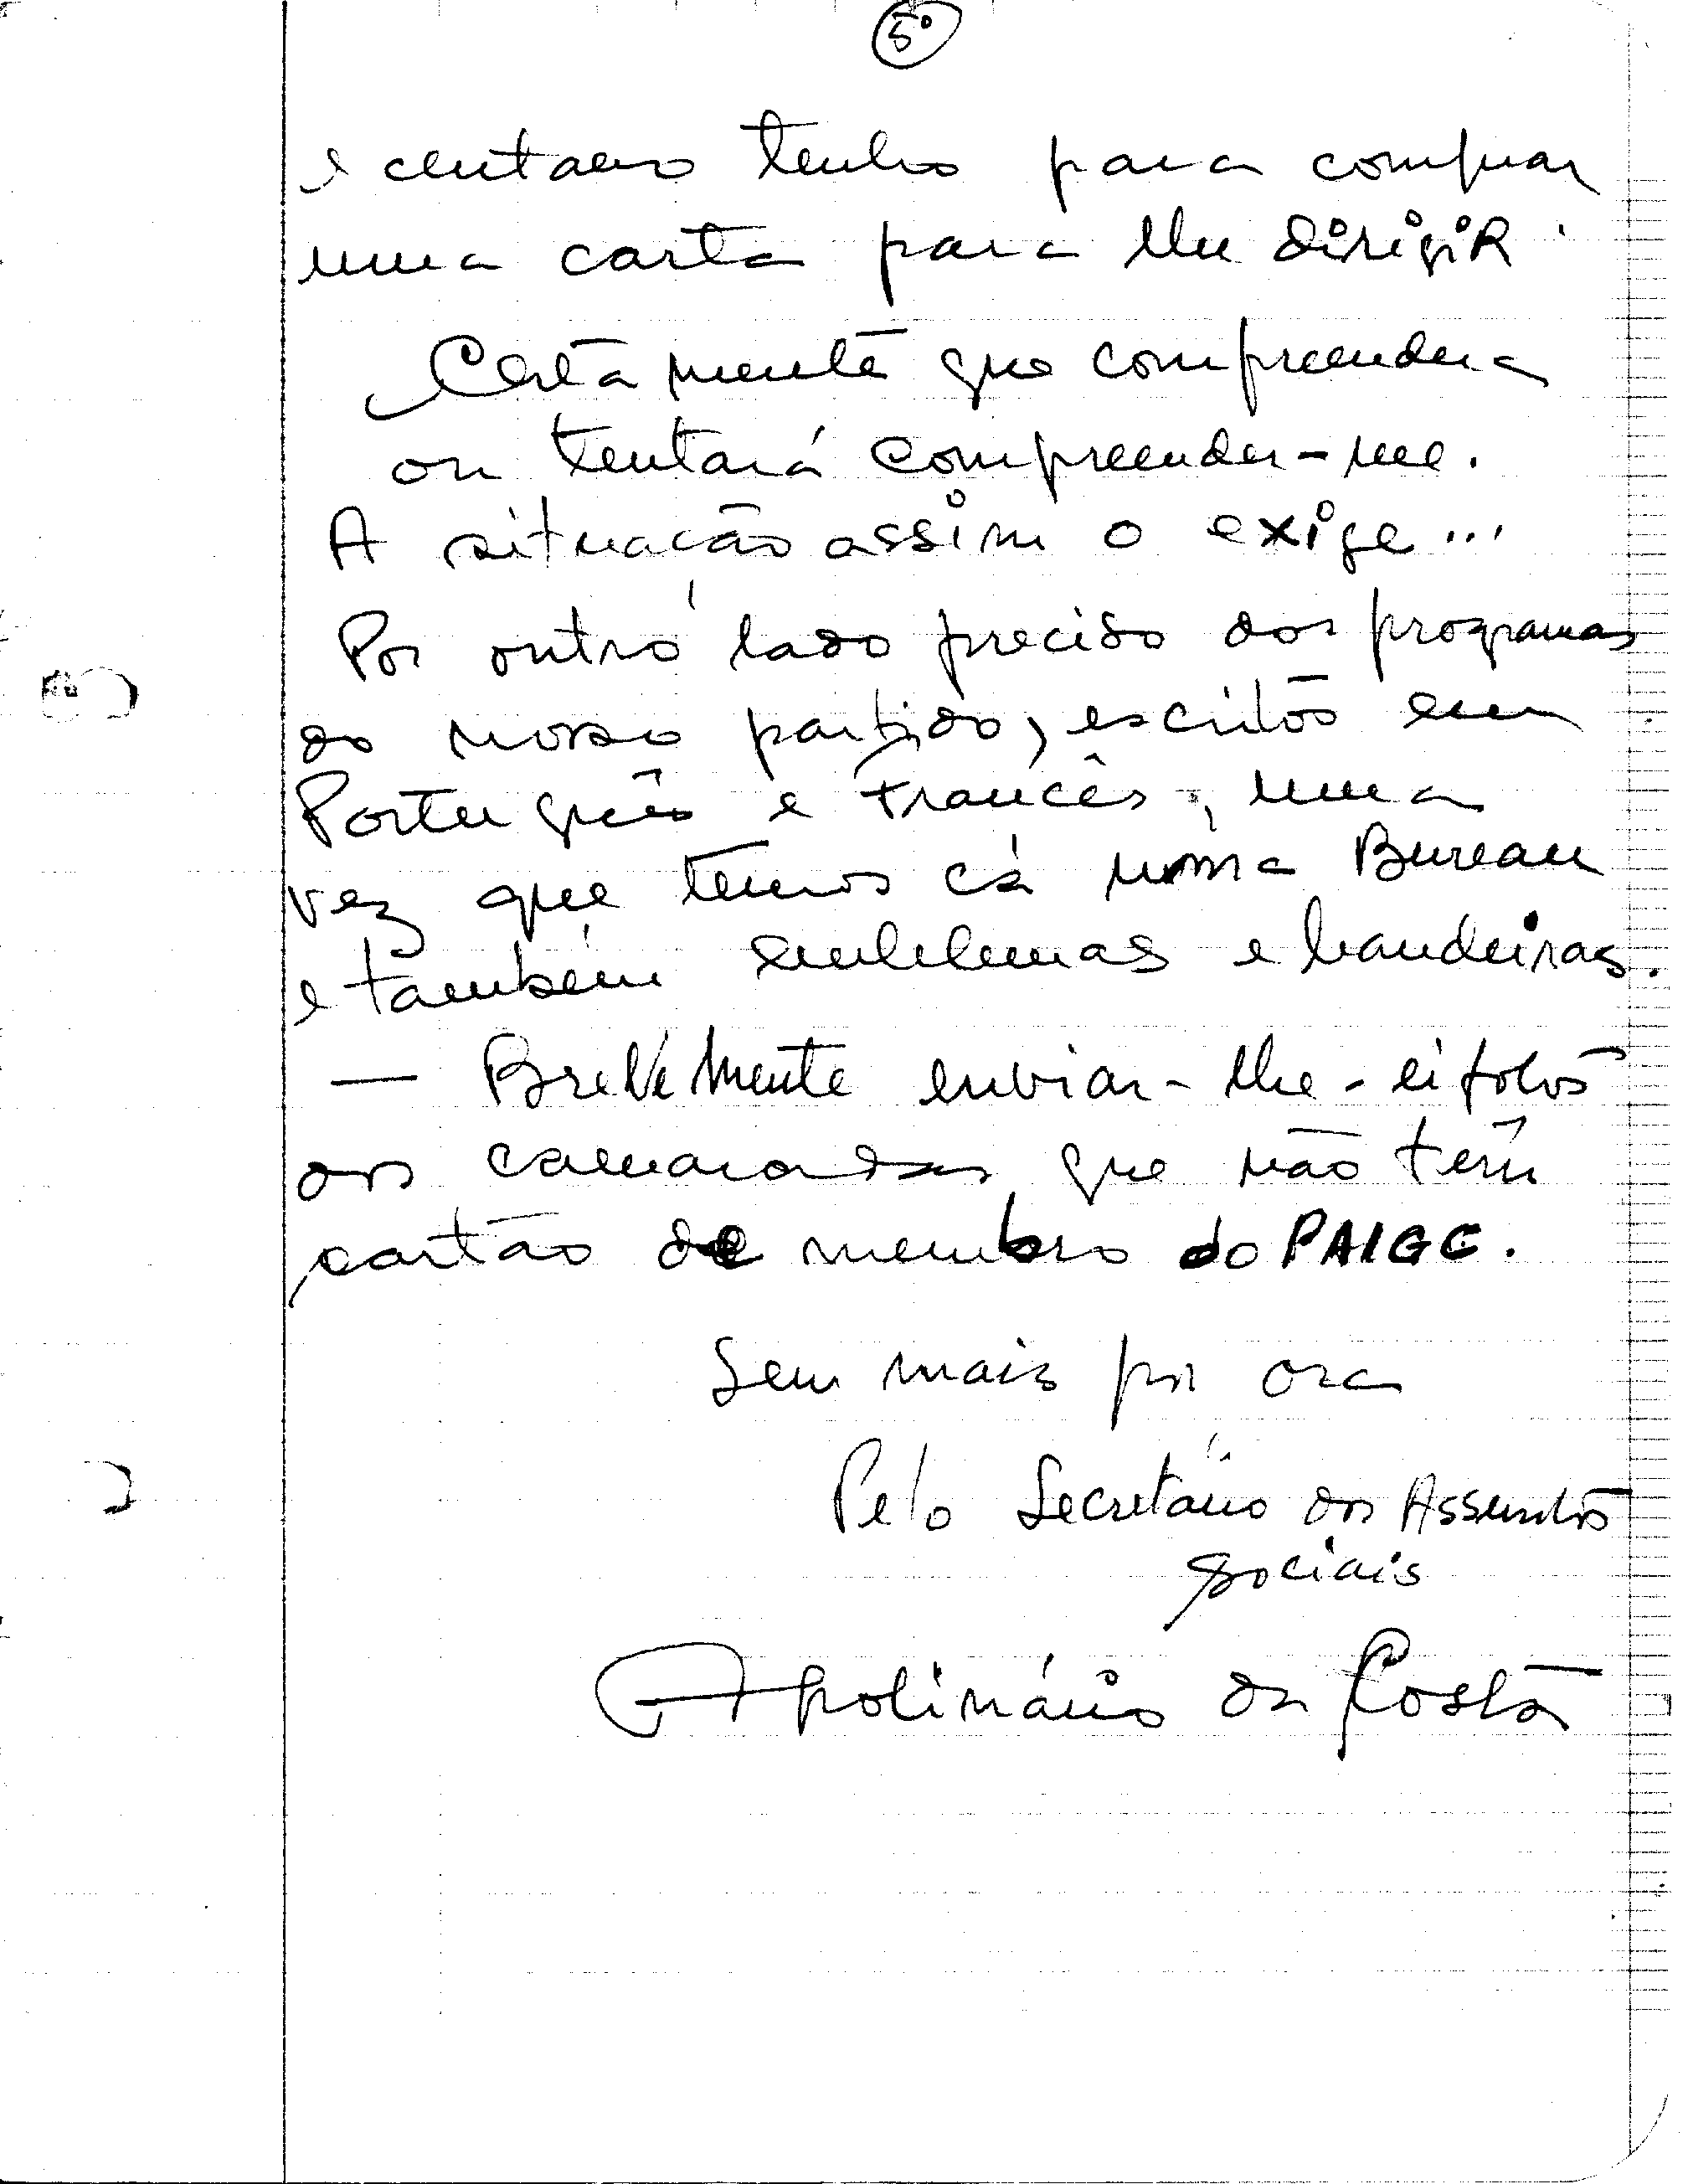 5º
e centavo tenho para comprar
uma carta para lhe dirigir.
Certamente que compreendera
ou tentará compreender-me.
A situação assim o exige...
Por outro lado preciso dos programas
do nosso partido, escritos em
Português e Francês, uma
vez que temos cá um Bureau
e também emblemas e bandeiras.
— Brevemente enviar-lhe-ei fotos
dos camaradas que não têm
cartão de membro do PAIGC.
Sem mais por ora
Pelo Secretário dos Assuntos
sociais
Apolinário da Costa